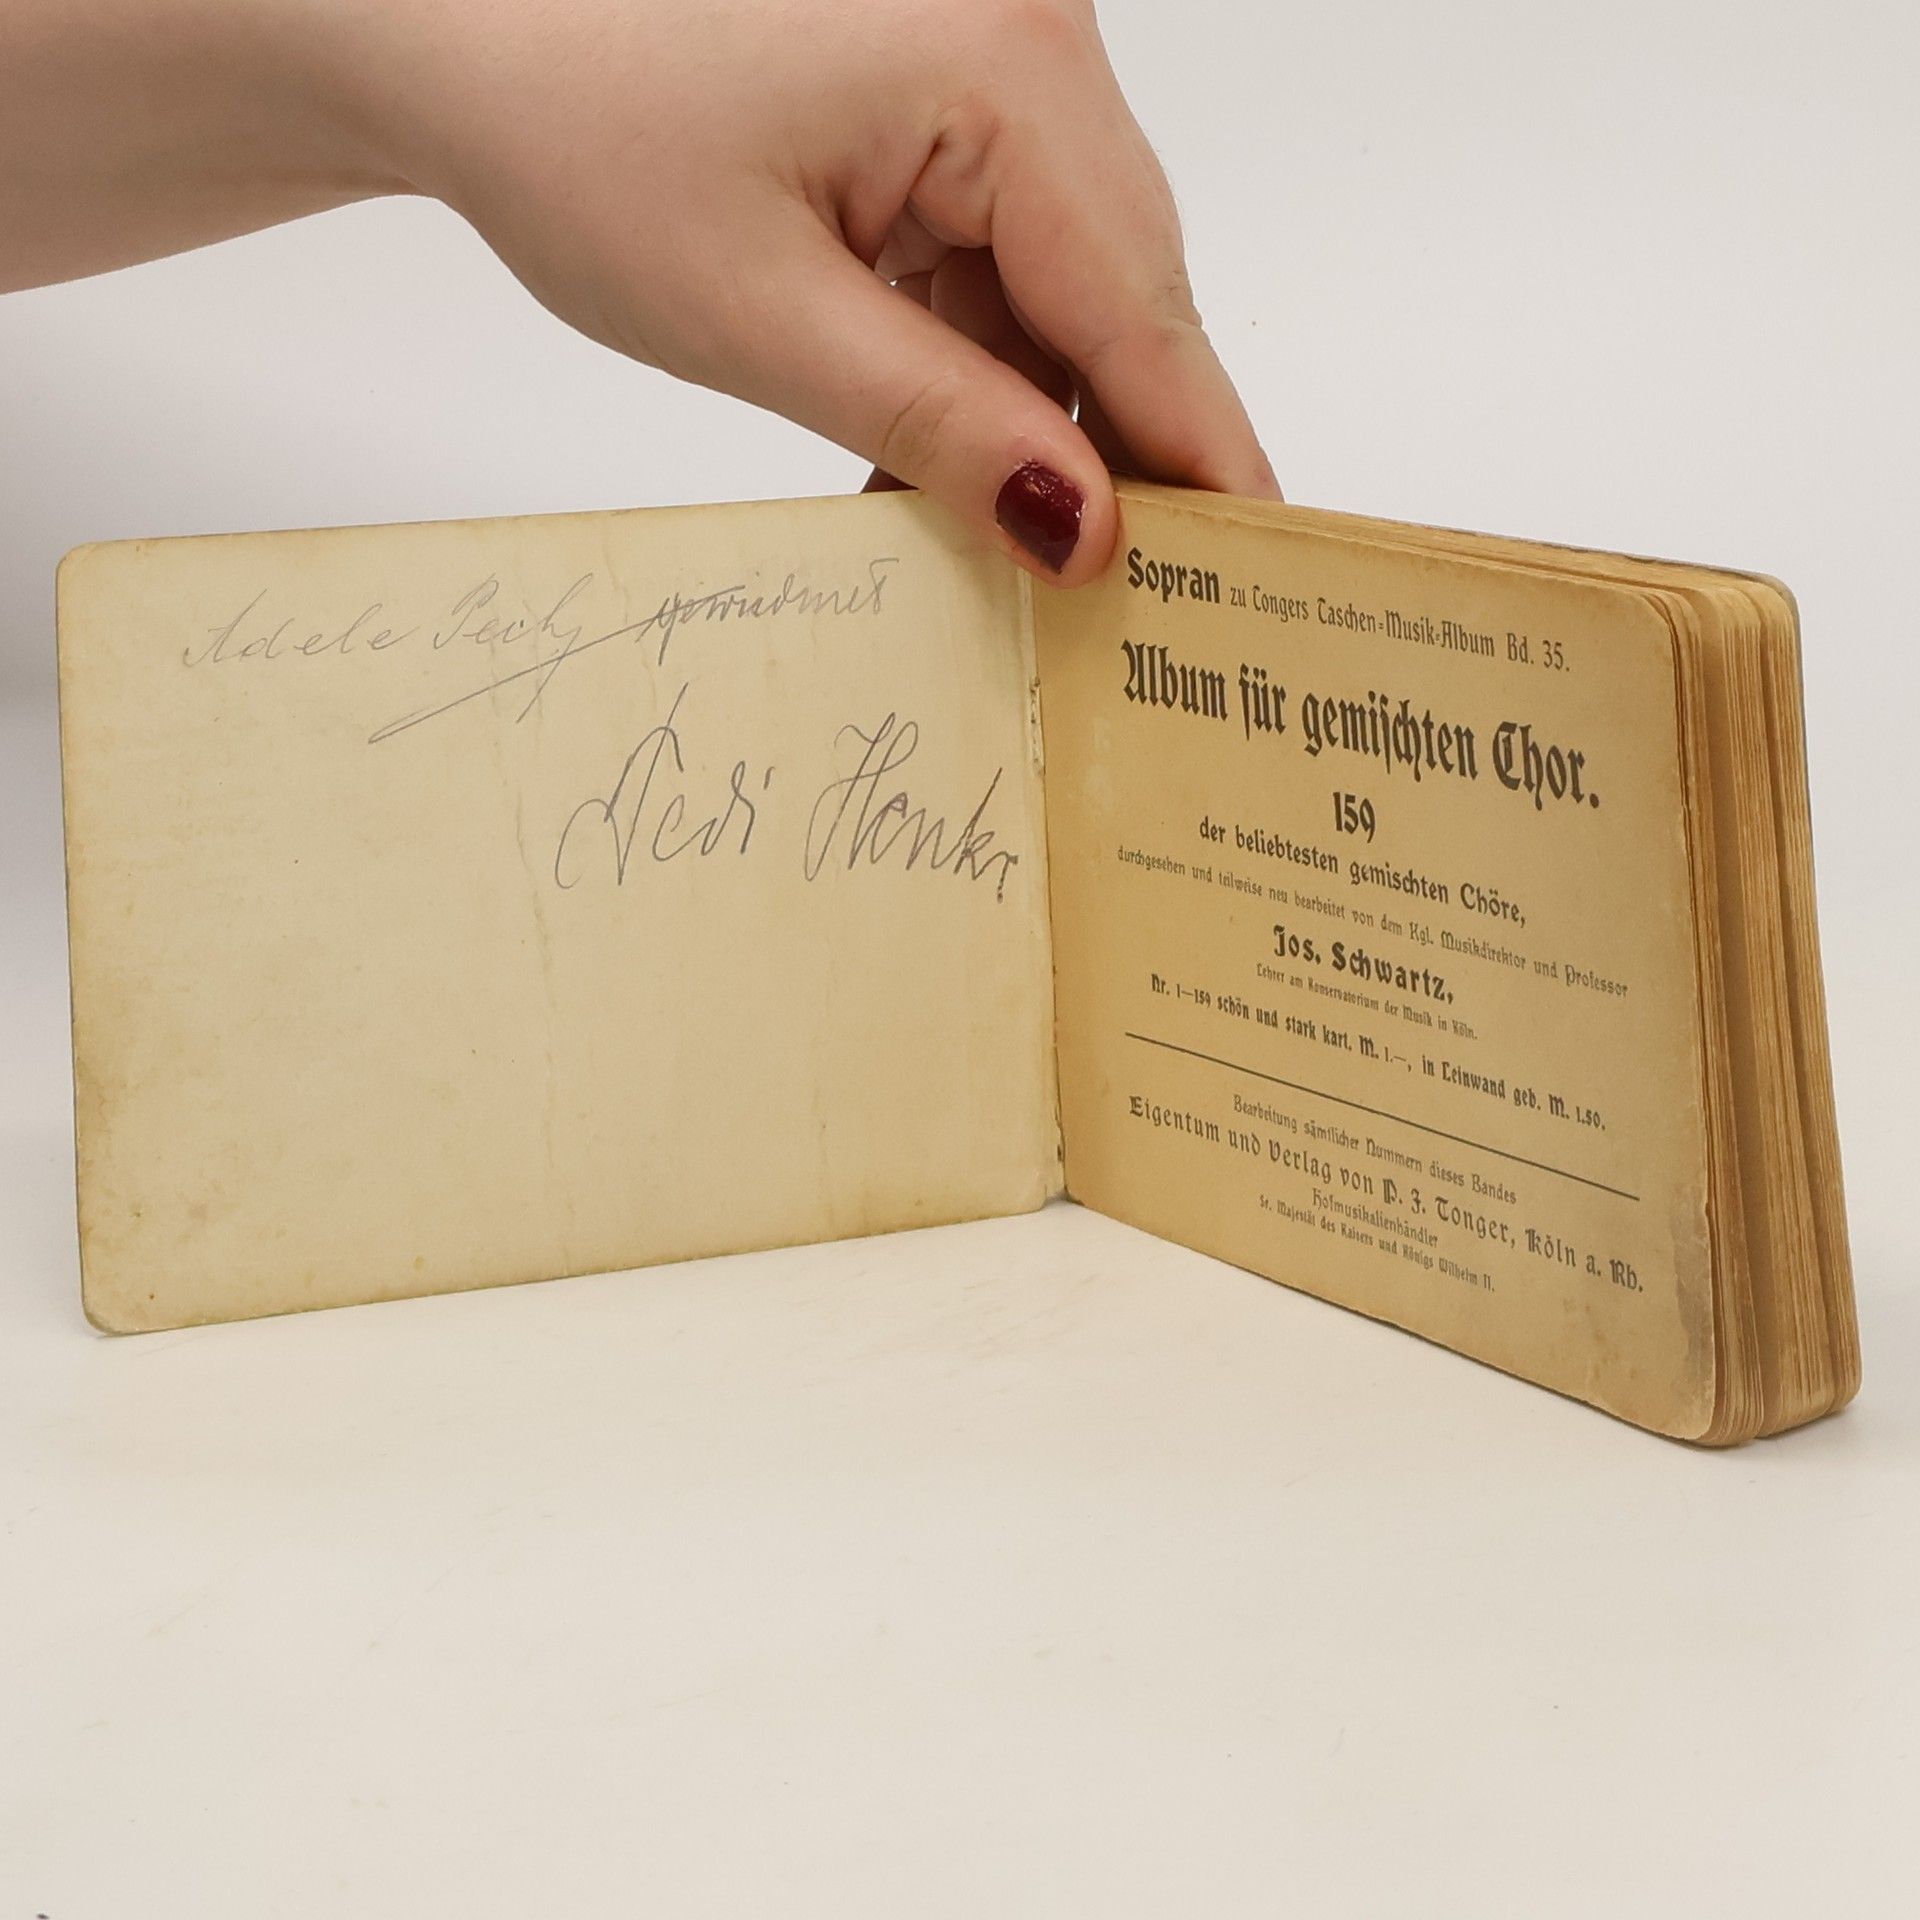 Adele Pech gewidmet
Tedi Henkr
Sopran zu Tongers Taschen=Musik=Album Bd. 35.
Album für gemischten Chor.
159
der beliebtesten gemischten Chöre,
durchgesehen und teilweise neu bearbeitet von dem Kgl. Musikdirektor und Professor
Jos. Schwartz,
Lehrer am Konservatorium der Musik in Köln.
Nr. 1—159 schön und stark kart. M. 1.—, in Leinwand geb. M. 1.50.
Bearbeitung sämtlicher Nummern dieses Bandes
Eigentum und Verlag von P. J. Tonger, Köln a. Rh.
Hofmusikalienhändler
Sr. Majestät des Kaisers und Königs Wilhelm II.